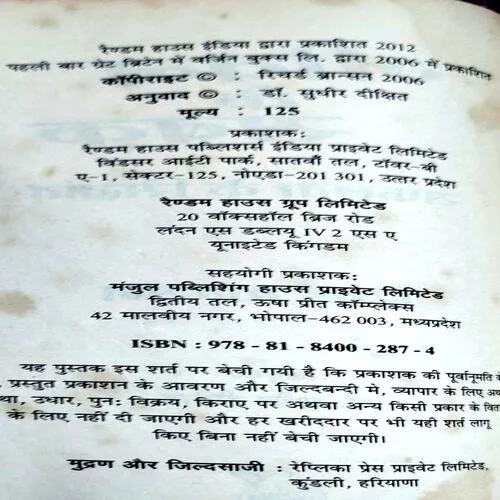 रैण्डम हाउस इंडिया द्वारा प्रकाशित 2012
पहली बार ग्रेट ब्रिटेन में वर्जिन बुक्स लि. द्वारा 2006 में प्रकाशित
कॉपीराइट © : रिचर्ड ब्रान्सन 2006
अनुवाद © : डॉ. सुधीर दीक्षित
मूल्य : 125
प्रकाशक:
रैण्डम हाउस पब्लिशर्स इंडिया प्राइवेट लिमिटेड
विंडसर आईटी पार्क, सातवाँ तल, टॉवर-बी
ए-1, सेक्टर-125, नोएडा-201 301, उत्तर प्रदेश
रैण्डम हाउस ग्रूप लिमिटेड
20 वॉक्सहॉल ब्रिज रोड
लंदन एस डब्लयू IV 2 एस ए
यूनाइटेड किंगडम
सहयोगी प्रकाशक:
मंजुल पब्लिशिंग हाउस प्राइवेट लिमिटेड
द्वितीय तल, ऊषा प्रीत कॉम्प्लेक्स
42 मालवीय नगर, भोपाल-462 003, मध्यप्रदेश
ISBN : 978 - 81 - 8400 - 287 - 4
यह पुस्तक इस शर्त पर बेची गयी है कि प्रकाशक की पूर्वानुमति के
प्रस्तुत प्रकाशन के आवरण और जिल्दबन्दी मे, व्यापार के लिए
उधार, पुनः विक्रय, किराए पर अथवा अन्य किसी प्रकार के
के लिए नहीं दी जाएगी और हर खरीददार पर भी यही शर्त लागू
किए बिना नहीं बेची जाएगी।
मुद्रण और जिल्दसाजी : रेप्लिका प्रेस प्राइवेट लिमिटेड,
कुंडली, हरियाणा